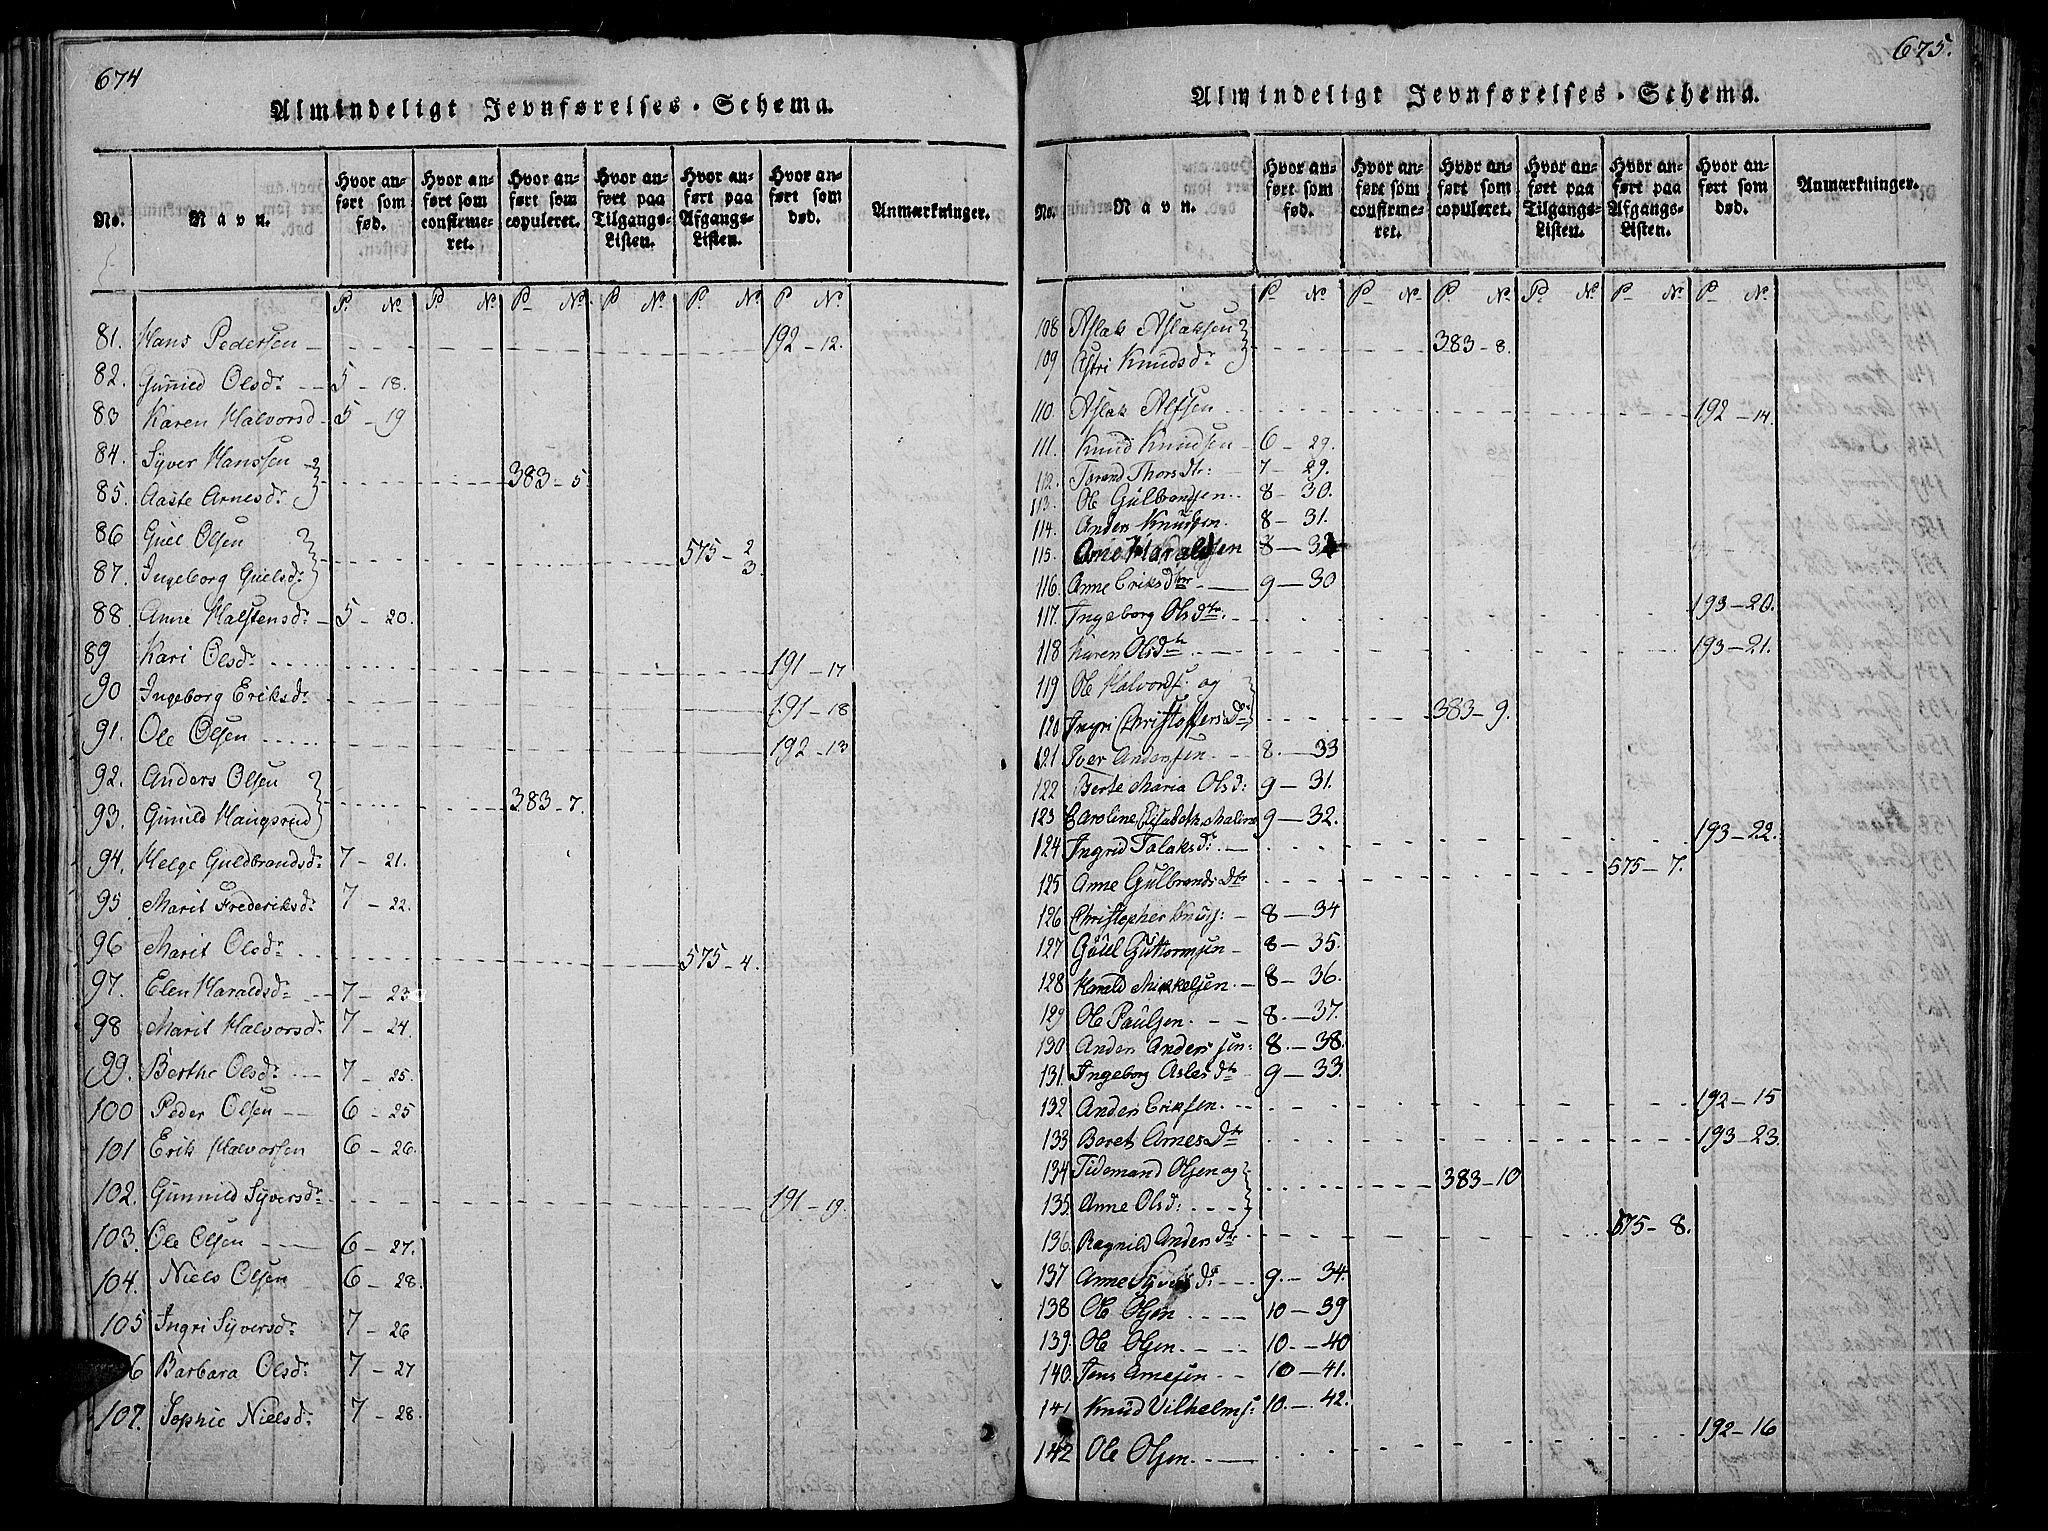 674
Almindeligt Jevnførelses-Schema.
No. | Navn. | Hvor anført som fød. | Hvor anført som confirmeret. | Hvor anført som copuleret. | Hvor anført paa Tilgangs-Listen. | Hvor anført paa Afgangs-Listen. | Hvor anført som død. | Anmærkninger.
P. No | P No | P No | P No | P No | P No
81. Hans Pedersen 192 - 12.
82. Gunnild Olsdr 5 - 18.
83 Karen Halvorsd 5 - 19
84. Syver Hanssen
85. Aaste Arnesdr 383 - 5.
86 Guel Olsen
87. Ingeborg Guelsdr 575 - 2 3.
88. Anne Halstensdr 5 - 20.
89 Kari Olsdr 191 - 17
90 Ingeborg Eriksdr 191 - 18
91. Ole Olsen 192 - 13
92. Anders Olsen
93. Gunild Haugsrud 383 - 7.
94. Helge Guldbrandsdr 7 - 21.
95 Marit Frederiksdr 7 - 22.
96 Marit Olsdr 575 - 4.
97. Elen Haraldsdr 7 - 23
98 Marit Halvorsdr 7 - 24.
99. Berthe Olsdr 7 - 25.
100 Peder Olsen 6 - 25
101 Erik Halvorsen 6 - 26.
102. Gunnild Syversdr 191 - 19.
103. Ole Olsen 6 - 27.
104. Niels Olsen 6 - 28.
105 Ingri Syversdr 7 - 26
6 Barbara Olsdr 7 - 27
107. Sophie Nielsdr 7 - 28.
675.
Almindeligt Jevnførelses-Schema.
No. | Navn. | Hvor anført som fød. | Hvor anført som confirmeret. | Hvor anført som copuleret. | Hvor anført paa Tilgangs-Listen. | Hvor anført paa Afgangs-Listen. | Hvor anført som død. | Anmærkninger.
P No | P No | P. No | P No | P No | P No
108 Aslak Aslaksen
109 Astri Knudsdr 383 - 8.
110. Aslak Alfsen 192 - 14.
111. Knud Knudsen 6 - 29.
112. Torand Thorsdtr: 7 - 29.
113. Ole Gulbrandsen 8 - 30.
114. Anders Knudsen. 8 - 31.
115. Arne Haraldsen 8 - 32
116 Anne Eriksdtr 9 - 30
117. Ingeborg Olsdtr. 193 - 20.
118 Karen Olsdtr 193 - 21.
119 Ole Halvords. og
120 Ingri Christoffersdr 383 - 9.
121 Iver Andersen 8. - 33
122 Berte Maria Olsd: 9 - 31.
123 Caroline Elisabeth Malene 9 - 32.
124 Ingrid Talaksdr. 193 - 22.
125 Anne Gulbrandsdtr 575 - 7.
126 Christopher Knuds: 8 - 34
127 Gouel Guttormsen 8 - 35.
128 Harald Mikkelsen. 8 - 36.
129 Ole Paulsen. 8. - 37.
130 Anders Andersen: 8. - 38.
131. Ingeborg Aslesdtr 9 - 33.
132 Anders Eriksen. 192 - 15
133 Boret Arnesdtr 193 - 23
134 Tidemand Olsen og
135. Anne Olsd: 383 - 10
136. Ragnild Andersdtr 575 - 8.
137 Anne Syversdr 9. - 34.
138 Ole Olsen 10 - 39
139. Ole Olsen. 10. - 40
140. Jens Arnesen 10 - 41.
141 Knud Vilhelms: 10. - 42.
142 Ole Olsen. 192 - 16